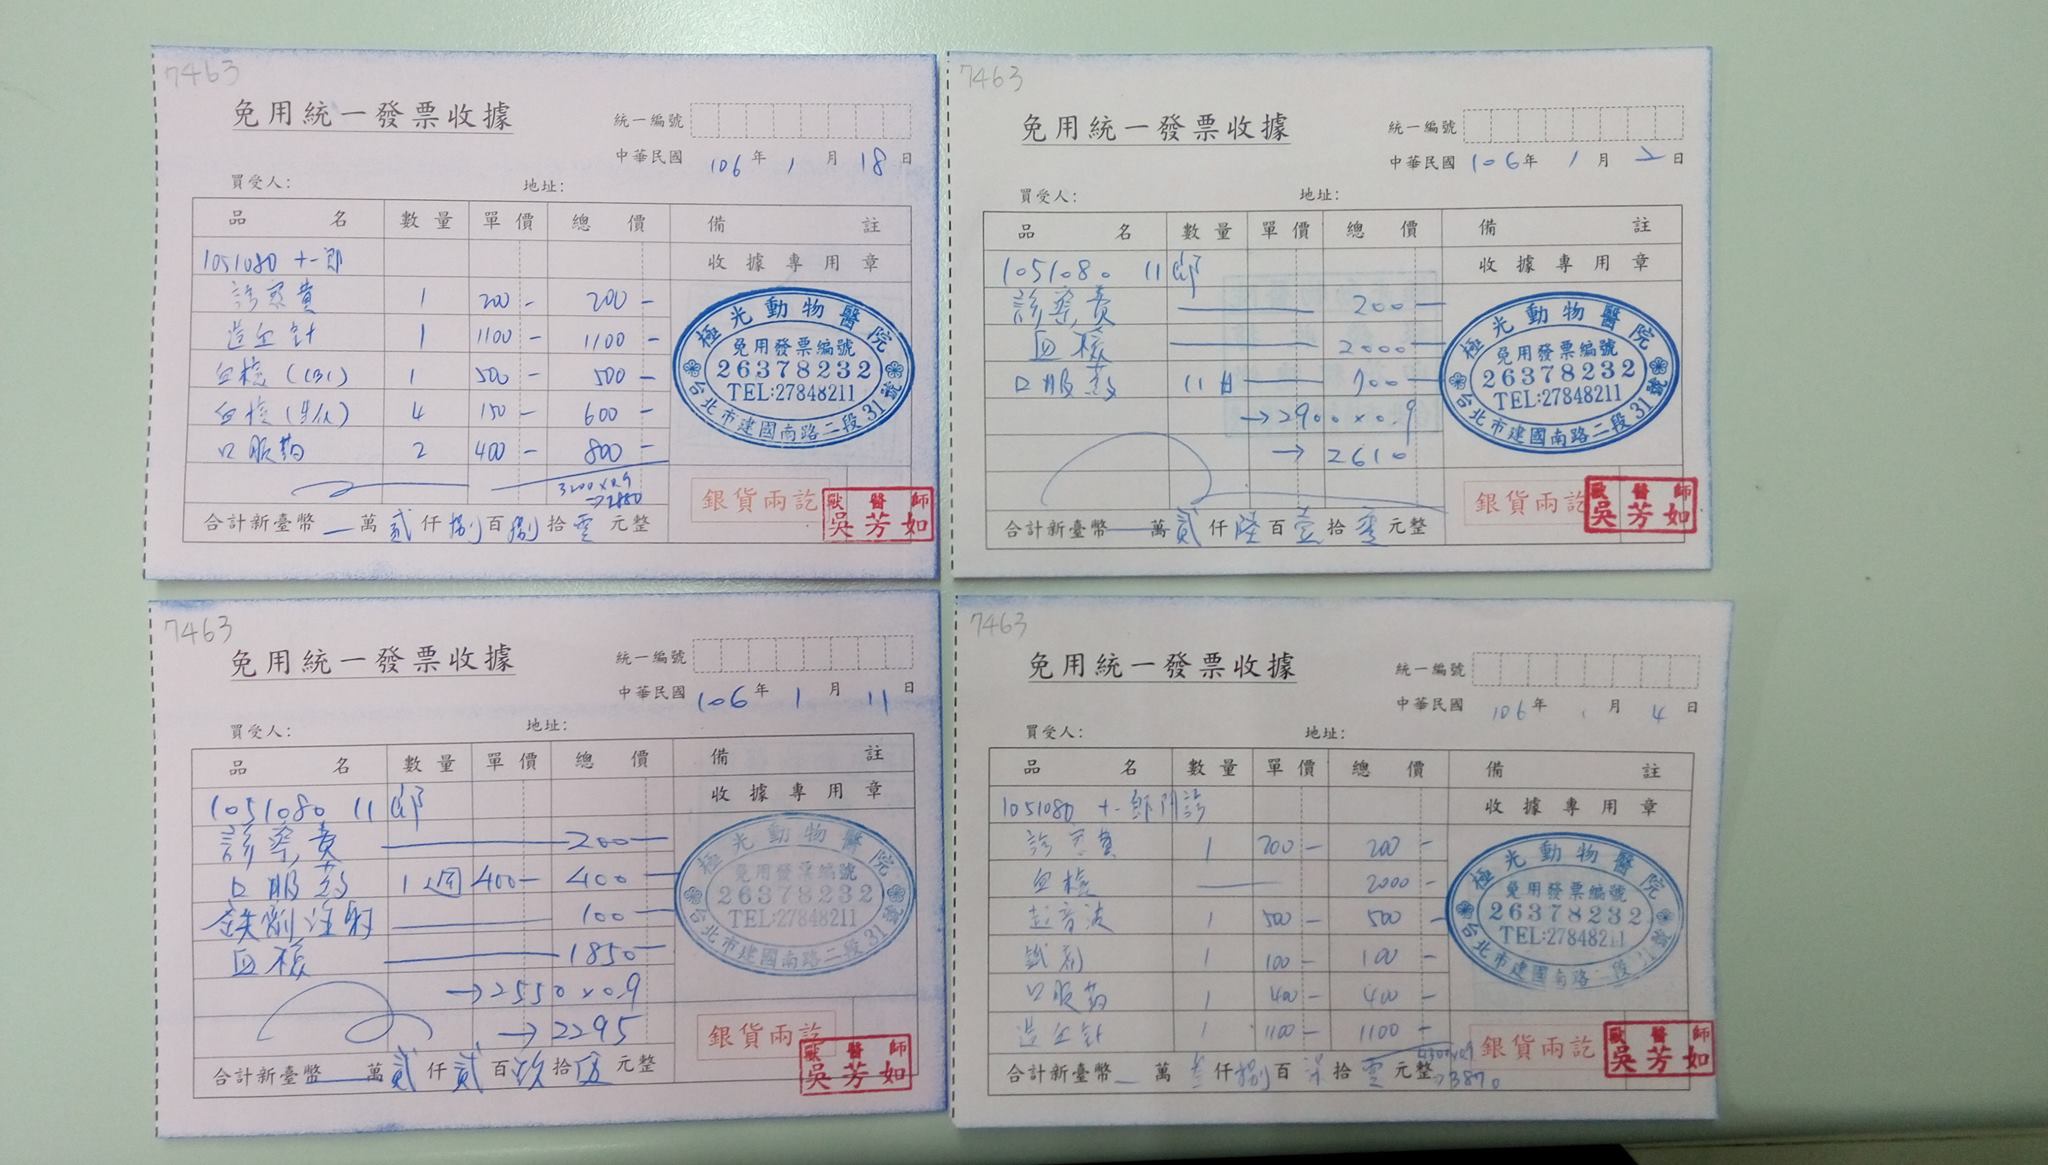 7463
免用統一發票收據
統一編號
中華民國 106 年 1 月 18 日
買受人: 地址:
品名 數量 單價 總價 備註
1051080 十一郎 收據專用章
診察費 1 200- 200-
造血針 1 1100- 1100-
血檢(CBC) 1 500- 500-
血檢(生化) 4 150- 600-
口服葯 2 400- 800-
3200×0.9
→2880
合計新臺幣 萬 貳 仟 捌 百 捌 拾 零 元整
極光動物醫院
免用發票編號
26378232
TEL:27848211
台北市建國南路二段31號
銀貨兩訖
獸醫師
吳芳如
7463
免用統一發票收據
統一編號
中華民國 106 年 1 月 2 日
買受人: 地址:
品名 數量 單價 總價 備註
1051080 11郎 收據專用章
診察費 200-
血檢 2000-
口服葯 11日 700-
→2900×0.9
→2610
合計新臺幣 萬 貳 仟 陸 百 壹 拾 零 元整
極光動物醫院
免用發票編號
26378232
TEL:27848211
台北市建國南路二段31號
銀貨兩訖
獸醫師
吳芳如
7463
免用統一發票收據
統一編號
中華民國 106 年 1 月 11 日
買受人: 地址:
品名 數量 單價 總價 備註
1051080 11郎 收據專用章
診察費 200-
口服葯 1週 400- 400-
鉄劑注射 100-
血檢 1850-
→2550×0.9
→2295
合計新臺幣 萬 貳 仟 貳 百 玖 拾 伍 元整
極光動物醫院
免用發票編號
26378232
TEL:27848211
台北市建國南路二段31號
銀貨兩訖
獸醫師
吳芳如
7463
免用統一發票收據
統一編號
中華民國 106 年 1 月 4 日
買受人: 地址:
品名 數量 單價 總價 備註
1051080 十一郎門診 收據專用章
診察費 1 200- 200-
血檢 2000-
超音波 1 500- 500-
鐵劑 1 100- 100-
口服葯 1 400- 400-
造血針 1 1100- 1100-
4300×0.9
→3870
合計新臺幣 萬 叁 仟 捌 百 柒 拾 零 元整
極光動物醫院
免用發票編號
26378232
TEL:27848211
台北市建國南路二段31號
銀貨兩訖
獸醫師
吳芳如